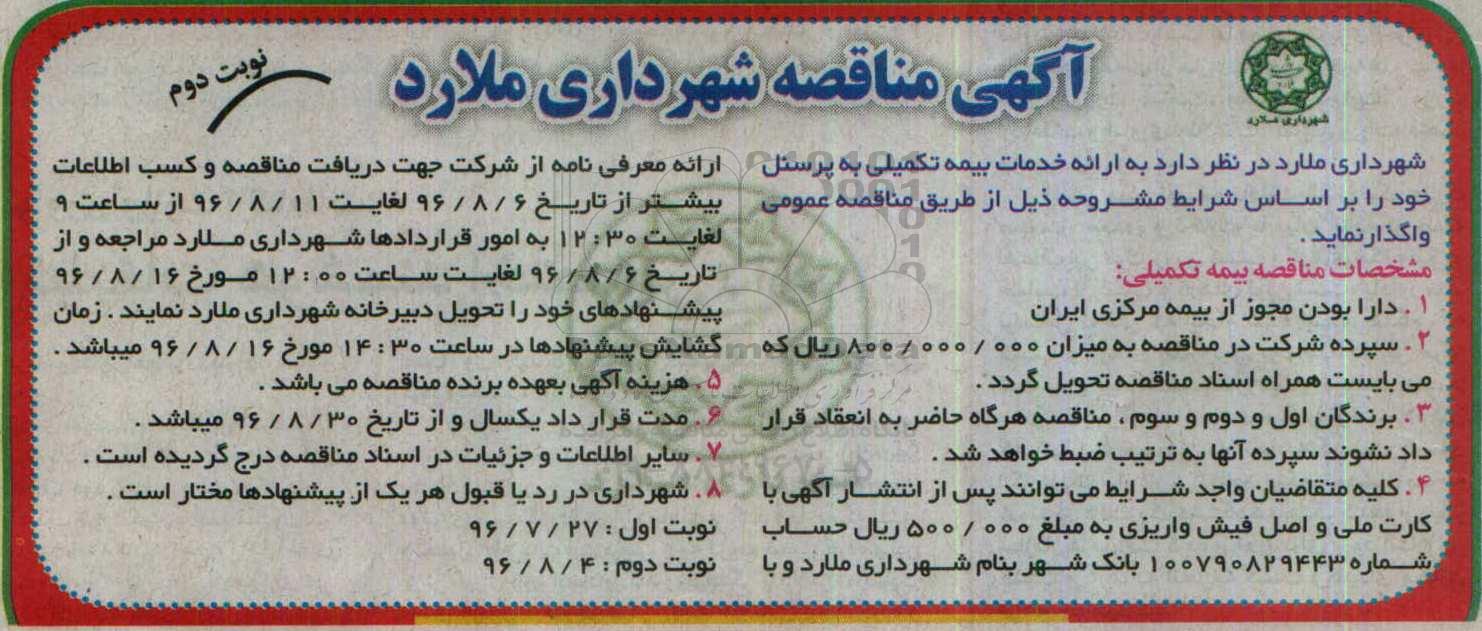 آگهی مناقصه شهرداری ملارد
نوبت دوم
شهرداری ملارد
شهرداری ملارد در نظر دارد به ارائه خدمات بیمه تکمیلی به پرسنل
خود را بر اساس شرایط مشروحه ذیل از طریق مناقصه عمومی
واگذارنماید .
مشخصات مناقصه بیمه تکمیلی:
۱ . دارا بودن مجوز از بیمه مرکزی ایران
۲ . سپرده شرکت در مناقصه به میزان ۸۰۰/۰۰۰/۰۰۰ ریال که
می بایست همراه اسناد مناقصه تحویل گردد .
۳ . برندگان اول و دوم و سوم ، مناقصه هرگاه حاضر به انعقاد قرار
داد نشوند سپرده آنها به ترتیب ضبط خواهد شد .
۴ . کلیه متقاضیان واجد شرایط می توانند پس از انتشار آگهی با
کارت ملی و اصل فیش واریزی به مبلغ ۵۰۰/۰۰۰ ریال حساب
شماره ۱۰۰۷۹۰۸۲۹۴۴۳ بانک شهر بنام شهرداری ملارد و با
ارائه معرفی نامه از شرکت جهت دریافت مناقصه و کسب اطلاعات
بیشتر از تاریخ ۹۶/۸/۶ لغایت ۹۶/۸/۱۱ از ساعت ۹
لغایت ۱۲:۳۰ به امور قراردادها شهرداری ملارد مراجعه و از
تاریخ ۹۶/۸/۶ لغایت ساعت ۱۲:۰۰ مورخ ۹۶/۸/۱۶
پیشنهادهای خود را تحویل دبیرخانه شهرداری ملارد نمایند . زمان
گشایش پیشنهادها در ساعت ۱۴:۳۰ مورخ ۹۶/۸/۱۶ میباشد .
۵ . هزینه آگهی بعهده برنده مناقصه می باشد .
۶ . مدت قرار داد یکسال و از تاریخ ۹۶/۸/۳۰ میباشد .
۷ . سایر اطلاعات و جزئیات در اسناد مناقصه درج گردیده است .
۸ . شهرداری در رد یا قبول هر یک از پیشنهادها مختار است .
نوبت اول : ۹۶/۷/۲۷
نوبت دوم : ۹۶/۸/۴